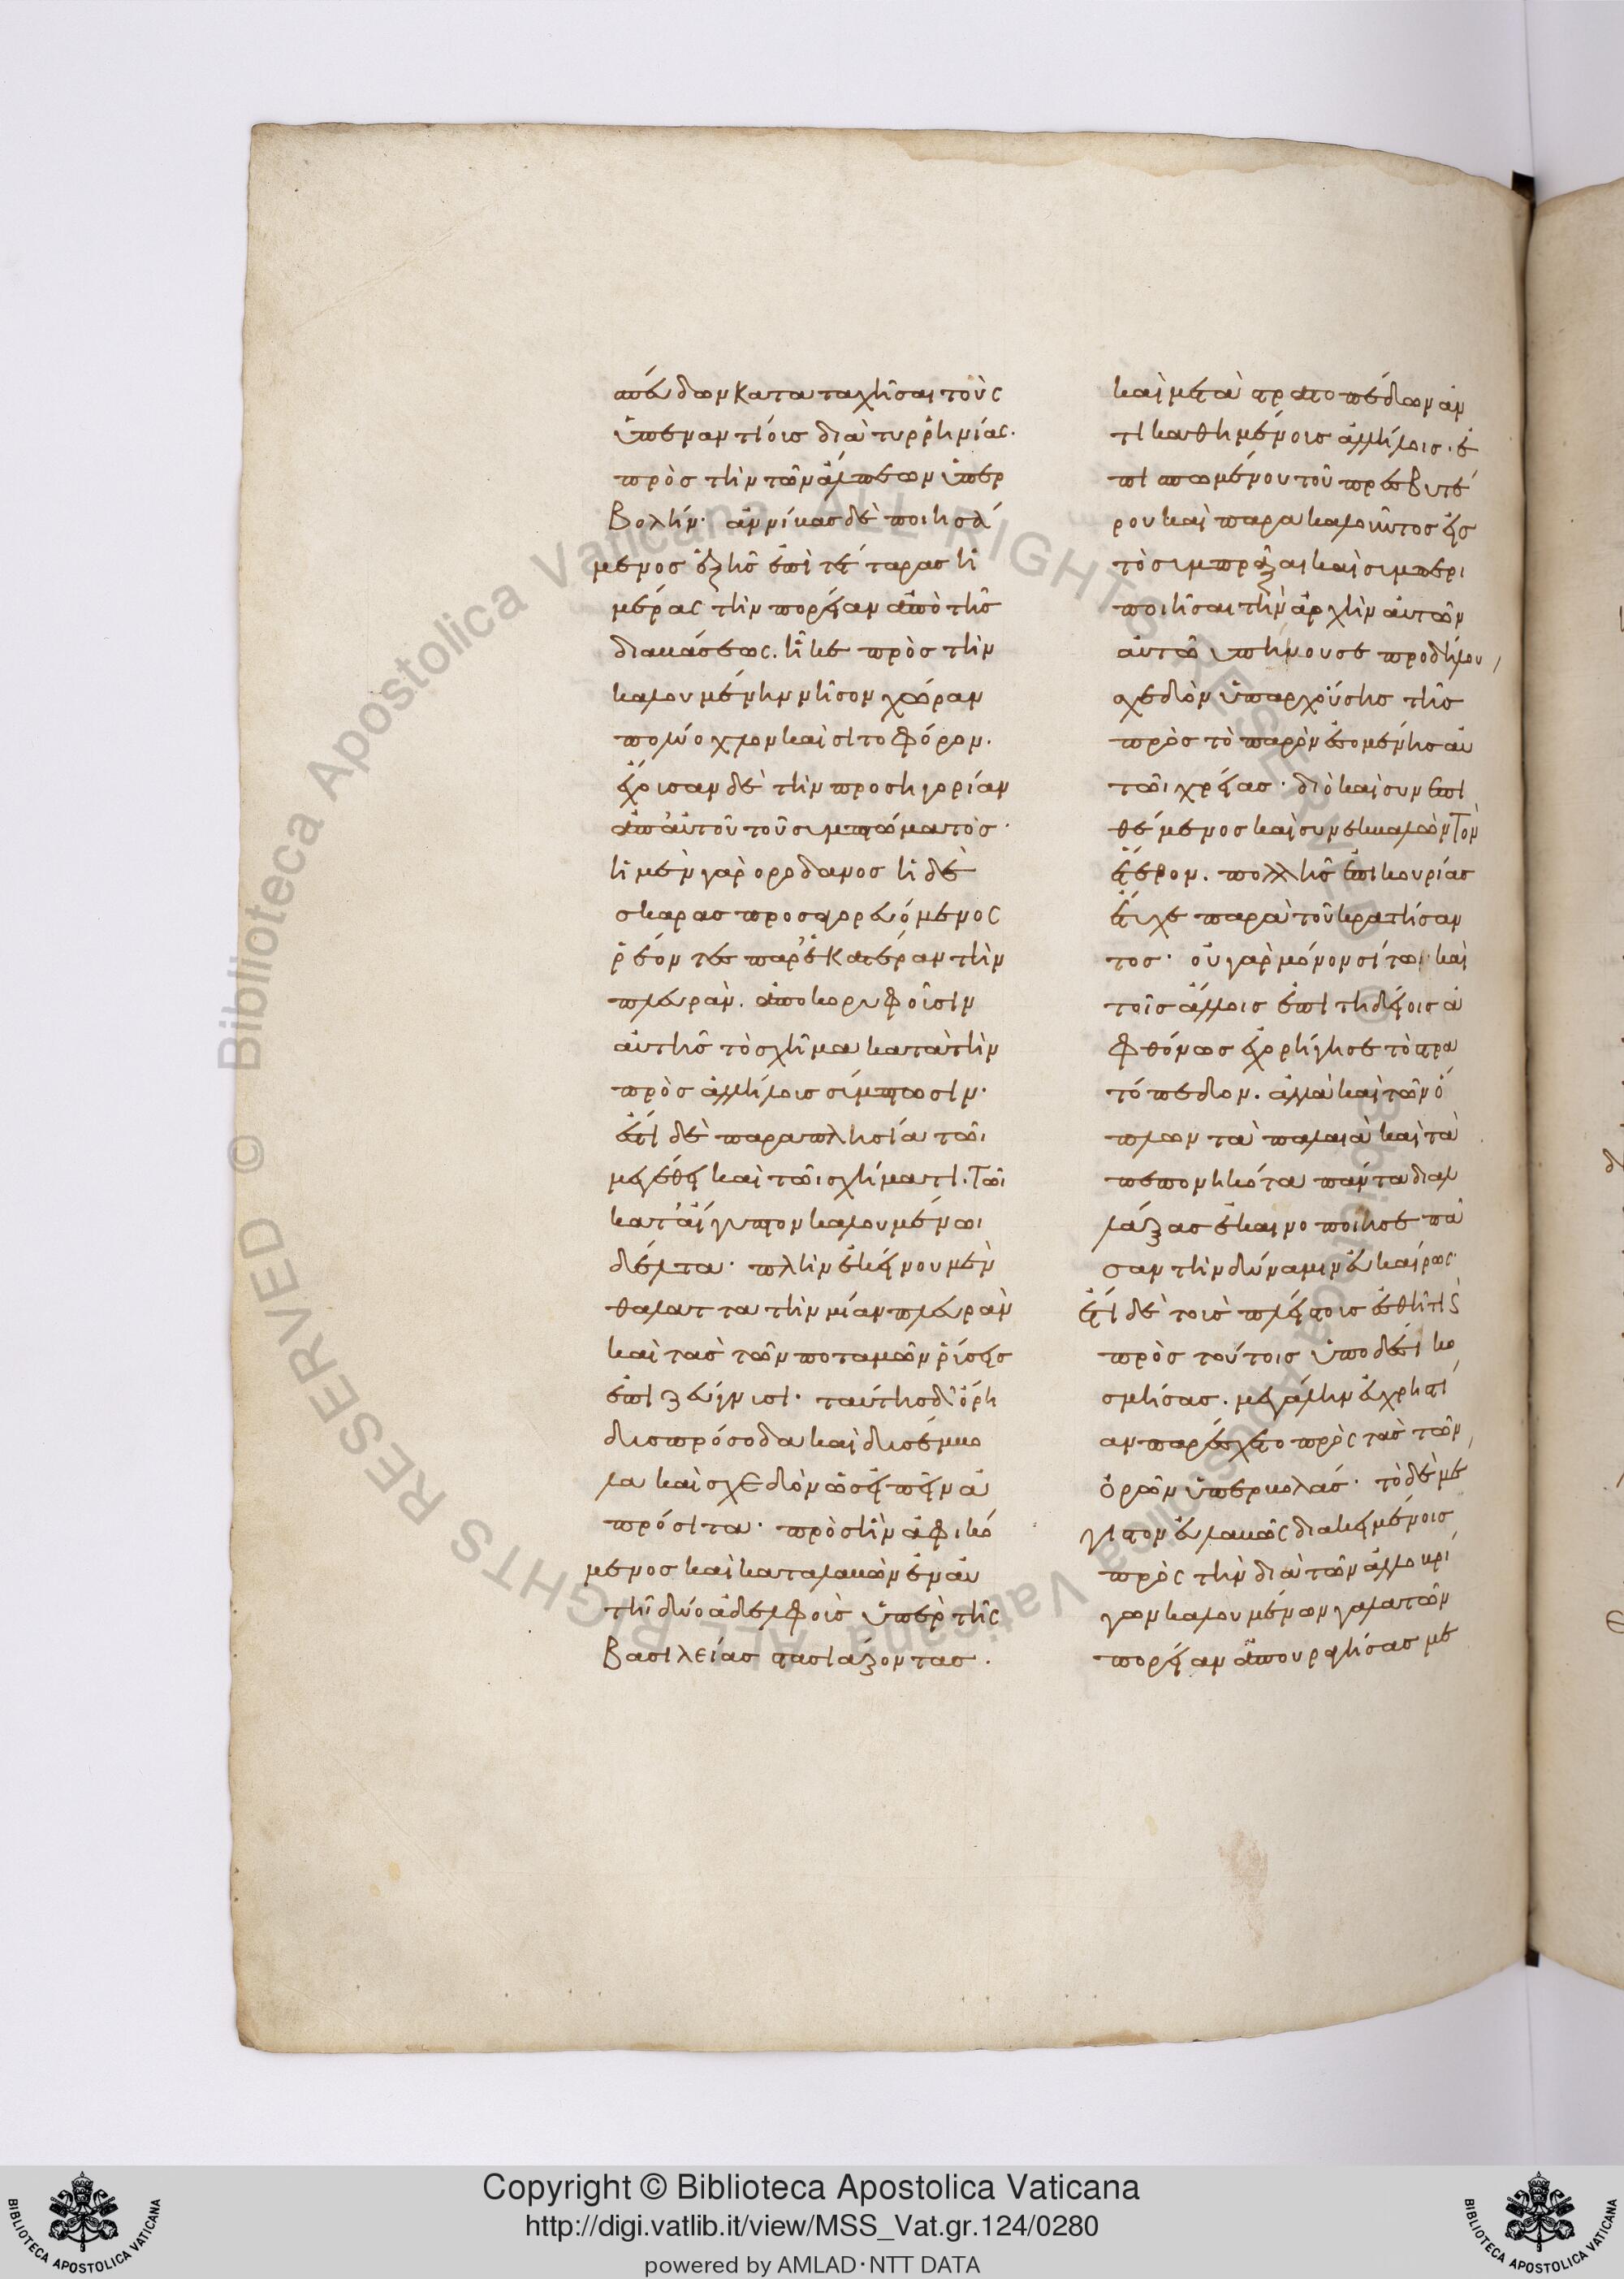 σπεύδων καταταχῆσαι τοὺς
ὑπεναντίοις διὰ τυρρηνίας·
πρὸς τὴν τῶν ἄλπεων ὑπερ
βολήν· ἀννίβας δὲ ποιησά
μενος ἑξῆς ἐπὶ τέτταρας ἡ
μέρας τὴν πορείαν ἀπὸ τῆς
διαβάσεως. ἧκε πρὸς τὴν
καλουμένην νῆσον χώραν
πολύοχλον καὶ σιτοφόρον.
ἔχουσαν δὲ τὴν προσηγορίαν
ἀπ' αὐτοῦ τοῦ συμπτώματος·
ἧ μὲν γὰρ οροδανος ἧ δὲ
σκαρας προσαγορευόμενος
ῥέοντες παρ' ἑκατέραν τὴν
πλευρὰν. ἀποκορυφοῦσιν
αὐτῆς τὸ σχῆμα κατὰ τὴν
πρὸς ἀλλήλοις σύμπτωσιν.
ἔστι δὲ παραπλησία τῶι
μεγέθει καὶ τῶι σχήματι. τῶι
κατ' αἴγυπτον καλουμένωι
δέλτα· πλὴν ἐκείνου μὲν
θαλαττα τὴν μίαν πλευρὰν
καὶ τὰς τῶν ποταμῶν ῥύσεις
ἐπιζεύγνυσι· ταύτης δ' ὄρη
δυσπρόσοδα καὶ δυσέμβο
λα καὶ σχεδὸν ὡς εἰπεῖν ἀ
πρόσιτα· πρὸς ἣν ἀφικό
μενος καὶ καταλαβὼν ἐν αὐ
τῆι δύο ἀδελφοὺς ὑπὲρ τῆς
βασιλείας στασιάζοντας.
καὶ μετὰ στρατοπέδων ἀν
τικαθημένοις ἀλλήλοις. ἐ
πισπωμένου τοῦ πρεσβυτέ
ρου καὶ παρακαλοῦντος εἰς
τὸ συμπρᾶξαι καὶ συμπερι
ποιῆσαι τὴν ἀρχὴν αὐτῶν
αὐτῶ ὑπήκουσε προδήλου
σχεδὸν ὑπαρχούσης τῆς
πρὸς τὸ παρὸν ἐσομένης αὐ
τῶι χρείας· διὸ καὶ συνεπι
θέμενος καὶ συνεκβαλὼν τὸν
ἕτερον. πολλῆς ἐπικουρίας
ἔτυχε παρὰ τοῦ κρατήσαν
τος· οὐ γὰρ μόνον σίτωι καὶ
τοῖς ἄλλοις ἐπιτηδείοις ἀ
φθόνως ἐχορήγησε τὸ στρα
τόπεδον. ἀλλὰ καὶ τῶν ὅ
πλων τὰ παλαιὰ καὶ τὰ
πεπονηκότα πάντα διαλ
λάξας ἐκαινοποίησε πᾶ
σαν τὴν δύναμιν εὐκαίρως·
ἔτι δὲ τοὺς πλείστους ἐσθῆτι καὶ
πρὸς τούτοις ὑποδέσει κο
σμήσας. μεγάλην εὐχρηστί
αν παρέσχετο πρὸς τὰς τῶν
ὀρῶν ὑπερβολάς· τὸ δὲ μέ
γιστον εὐλαβῶς διακειμένοις
πρὸς τὴν διὰ τῶν ἀλλοβρί
γων καλουμένων γαλατῶν
πορείαν ἀπουραγήσας με